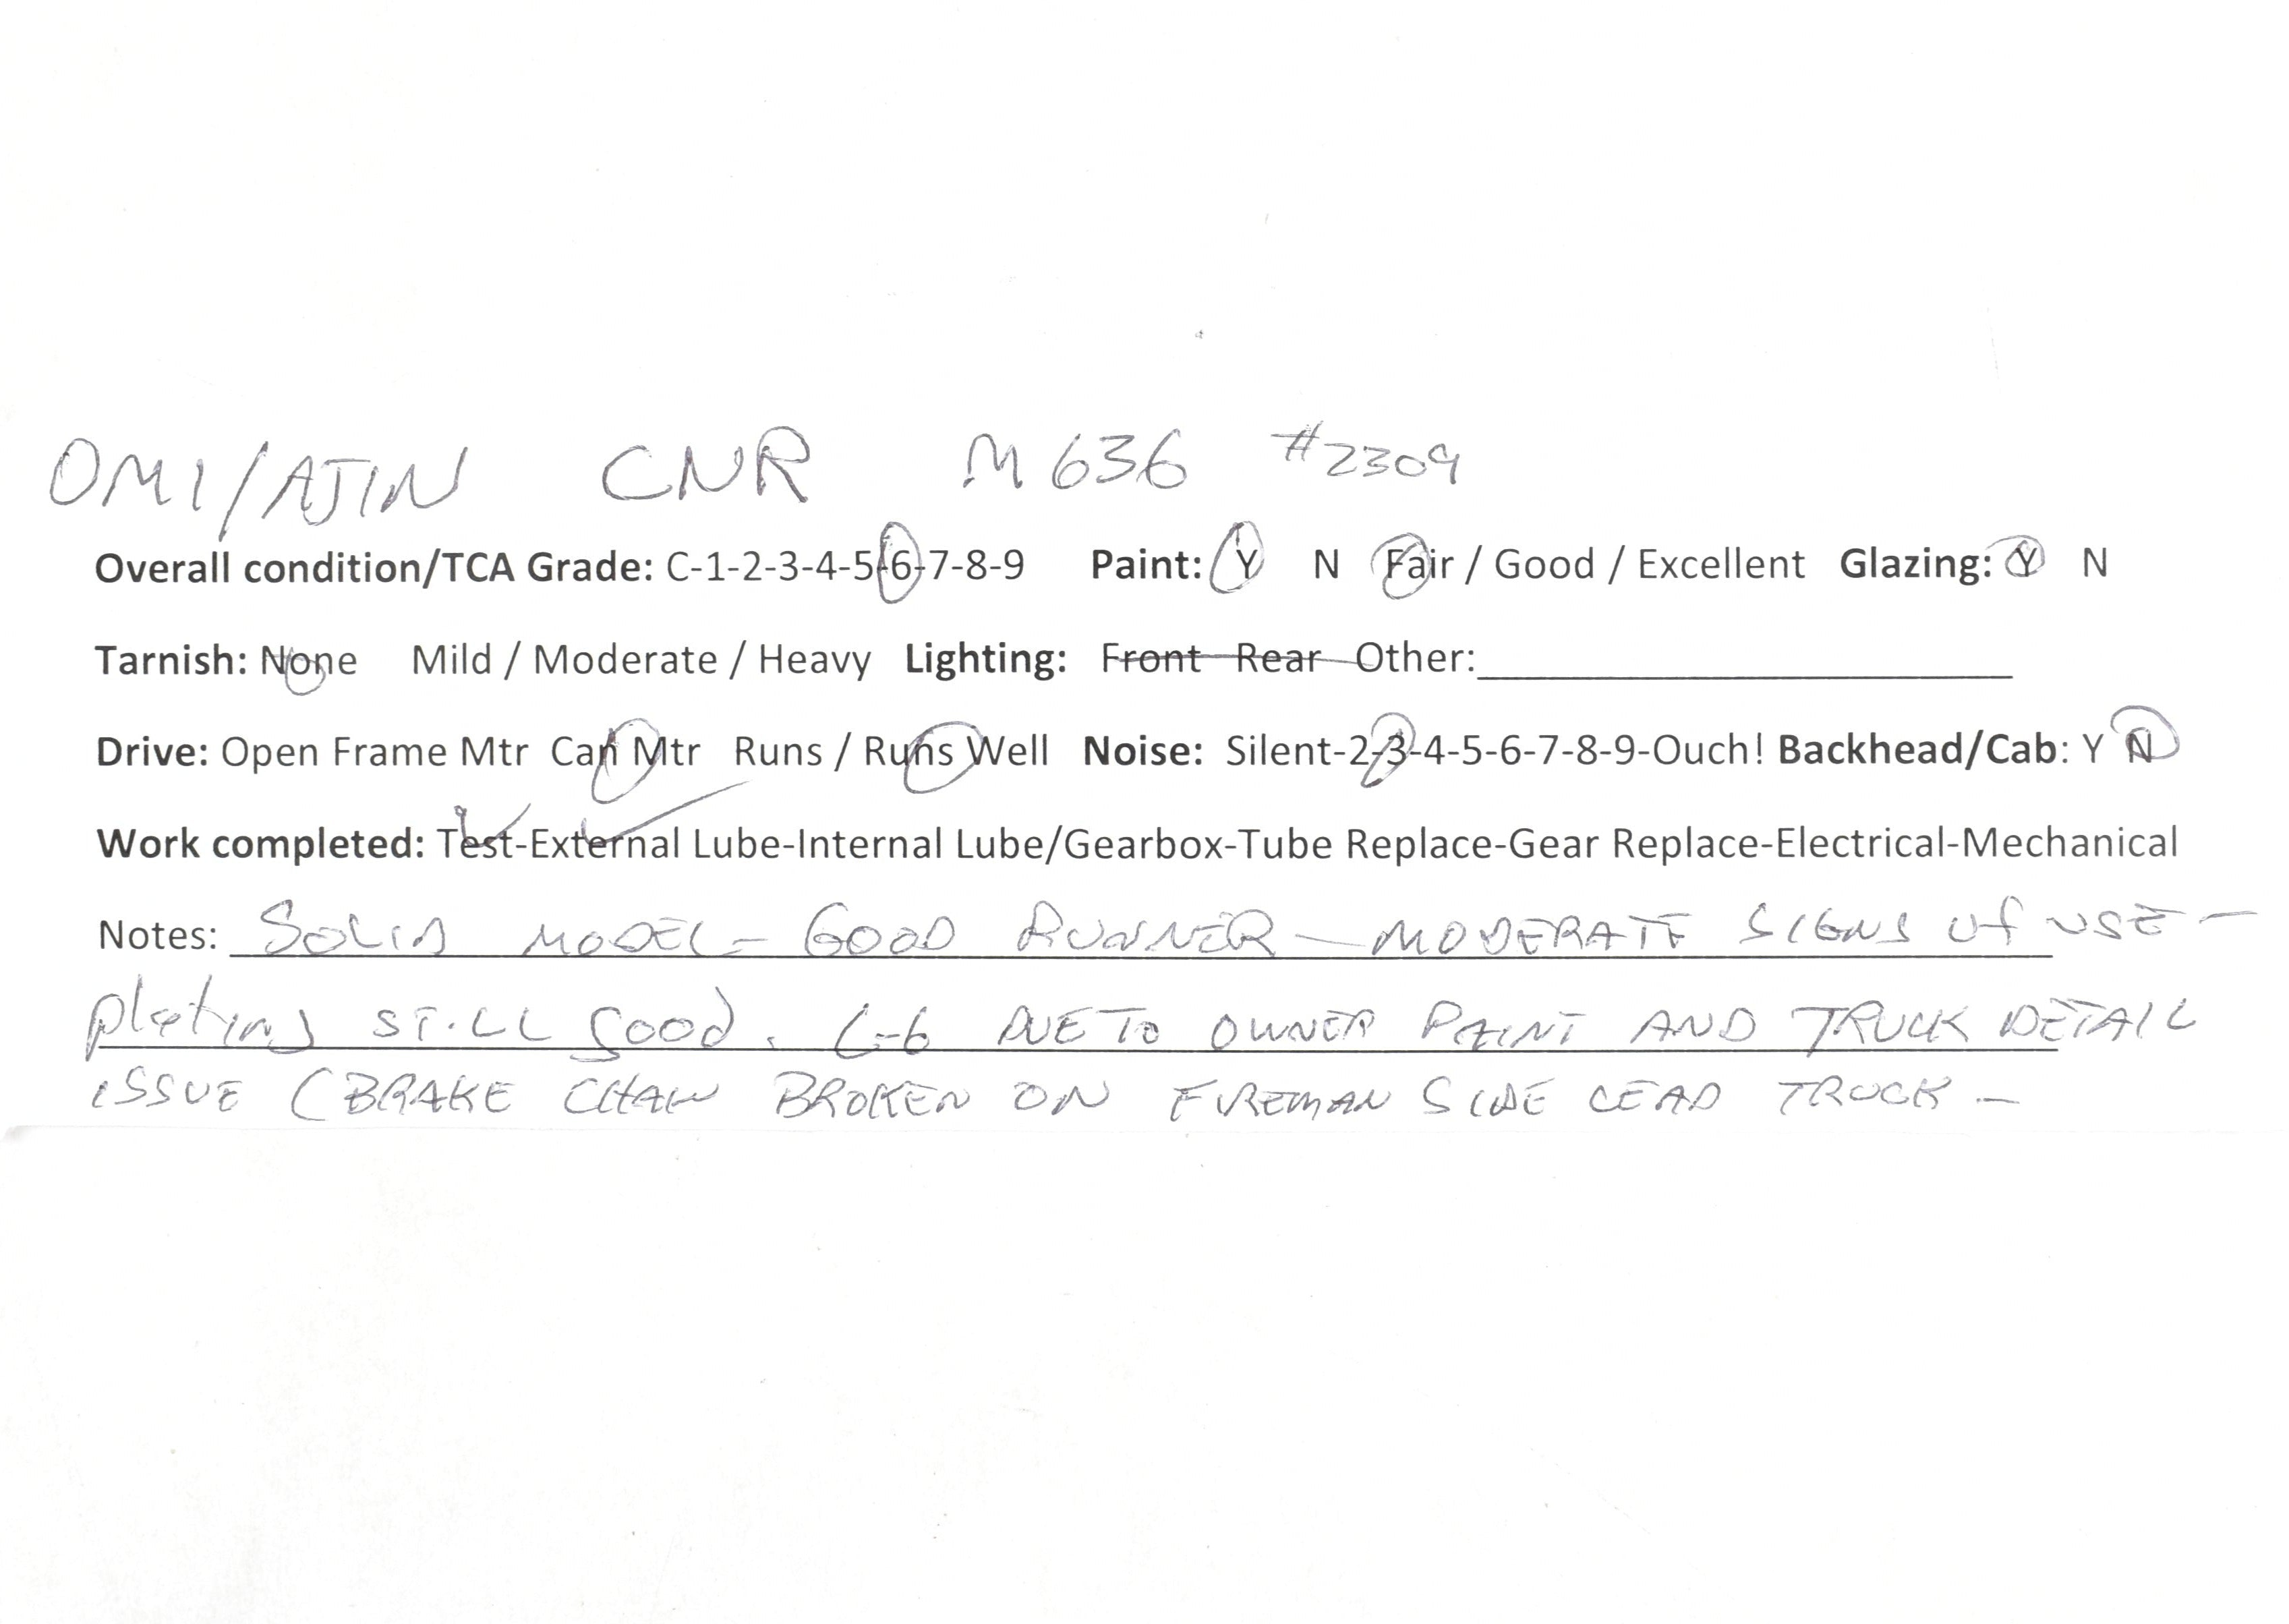 OMI/AJIN CNR M636 #2309
Overall condition/TCA Grade: C-1-2-3-4-5-6-7-8-9 Paint: Y N Fair / Good / Excellent Glazing: Y N
Tarnish: None Mild / Moderate / Heavy Lighting: Front Rear Other:
Drive: Open Frame Mtr Can Mtr Runs / Runs Well Noise: Silent-2-3-4-5-6-7-8-9-Ouch! Backhead/Cab: Y N
Work completed: Test-External Lube-Internal Lube/Gearbox-Tube Replace-Gear Replace-Electrical-Mechanical
Notes: SOLID MODEL - GOOD RUNNER - MODERATE SIGNS Of USE -
plating STILL good. C-6 DUE TO OWNER PAINT AND TRUCK DETAIL
ISSUE (BRAKE CHAIN BROKEN ON FIREMAN SIDE LEAD TRUCK -